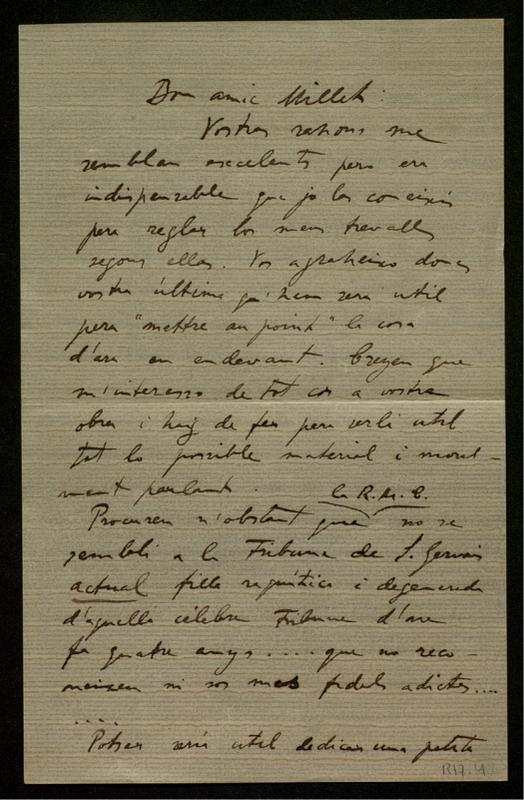 Bon amic Millet:
Vostras rahons me
semblan excelents pero era
indispensable que jo les coneixés
pera reglar los meus travalls
segons ellas. Vos agraheixo doncs
vostra última qu'hem será util
pera "mettre au point" la cosa
d'ara en endevant. Creyeu que
m'interesso de tot cor a vostra
obra i haig de fer pera serli util
tot lo possible material i moral-
ment parlant.
Procurem n'obstant que la R. M. C. no se
sembli a la Tribuna de S. Gervais
actual filla raquítica i degenerada
d'aquella célebre Tribuna d'ara
fa quatre anys .... que no reco-
neixen ni sos mes fidels adictes....
....
Potser seria util dedicar una petita
R17.4